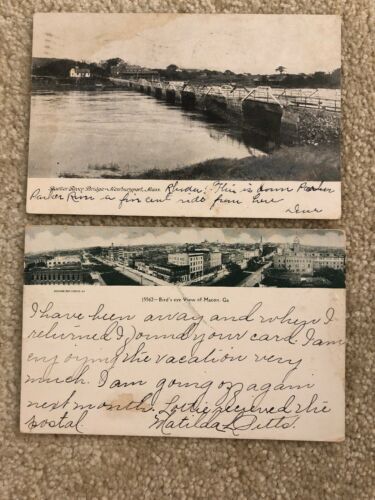 Parker River Bridge - Newburyport, Mass.
This is down Parker
Parker River a five cent ride from here
15562-Bird's eye View of Macon, Ga
I have been away and when I
returned I found your card. I am
enjoying the vacation very
much. I am going off again
next month. Lottie received the
postal. Matilda